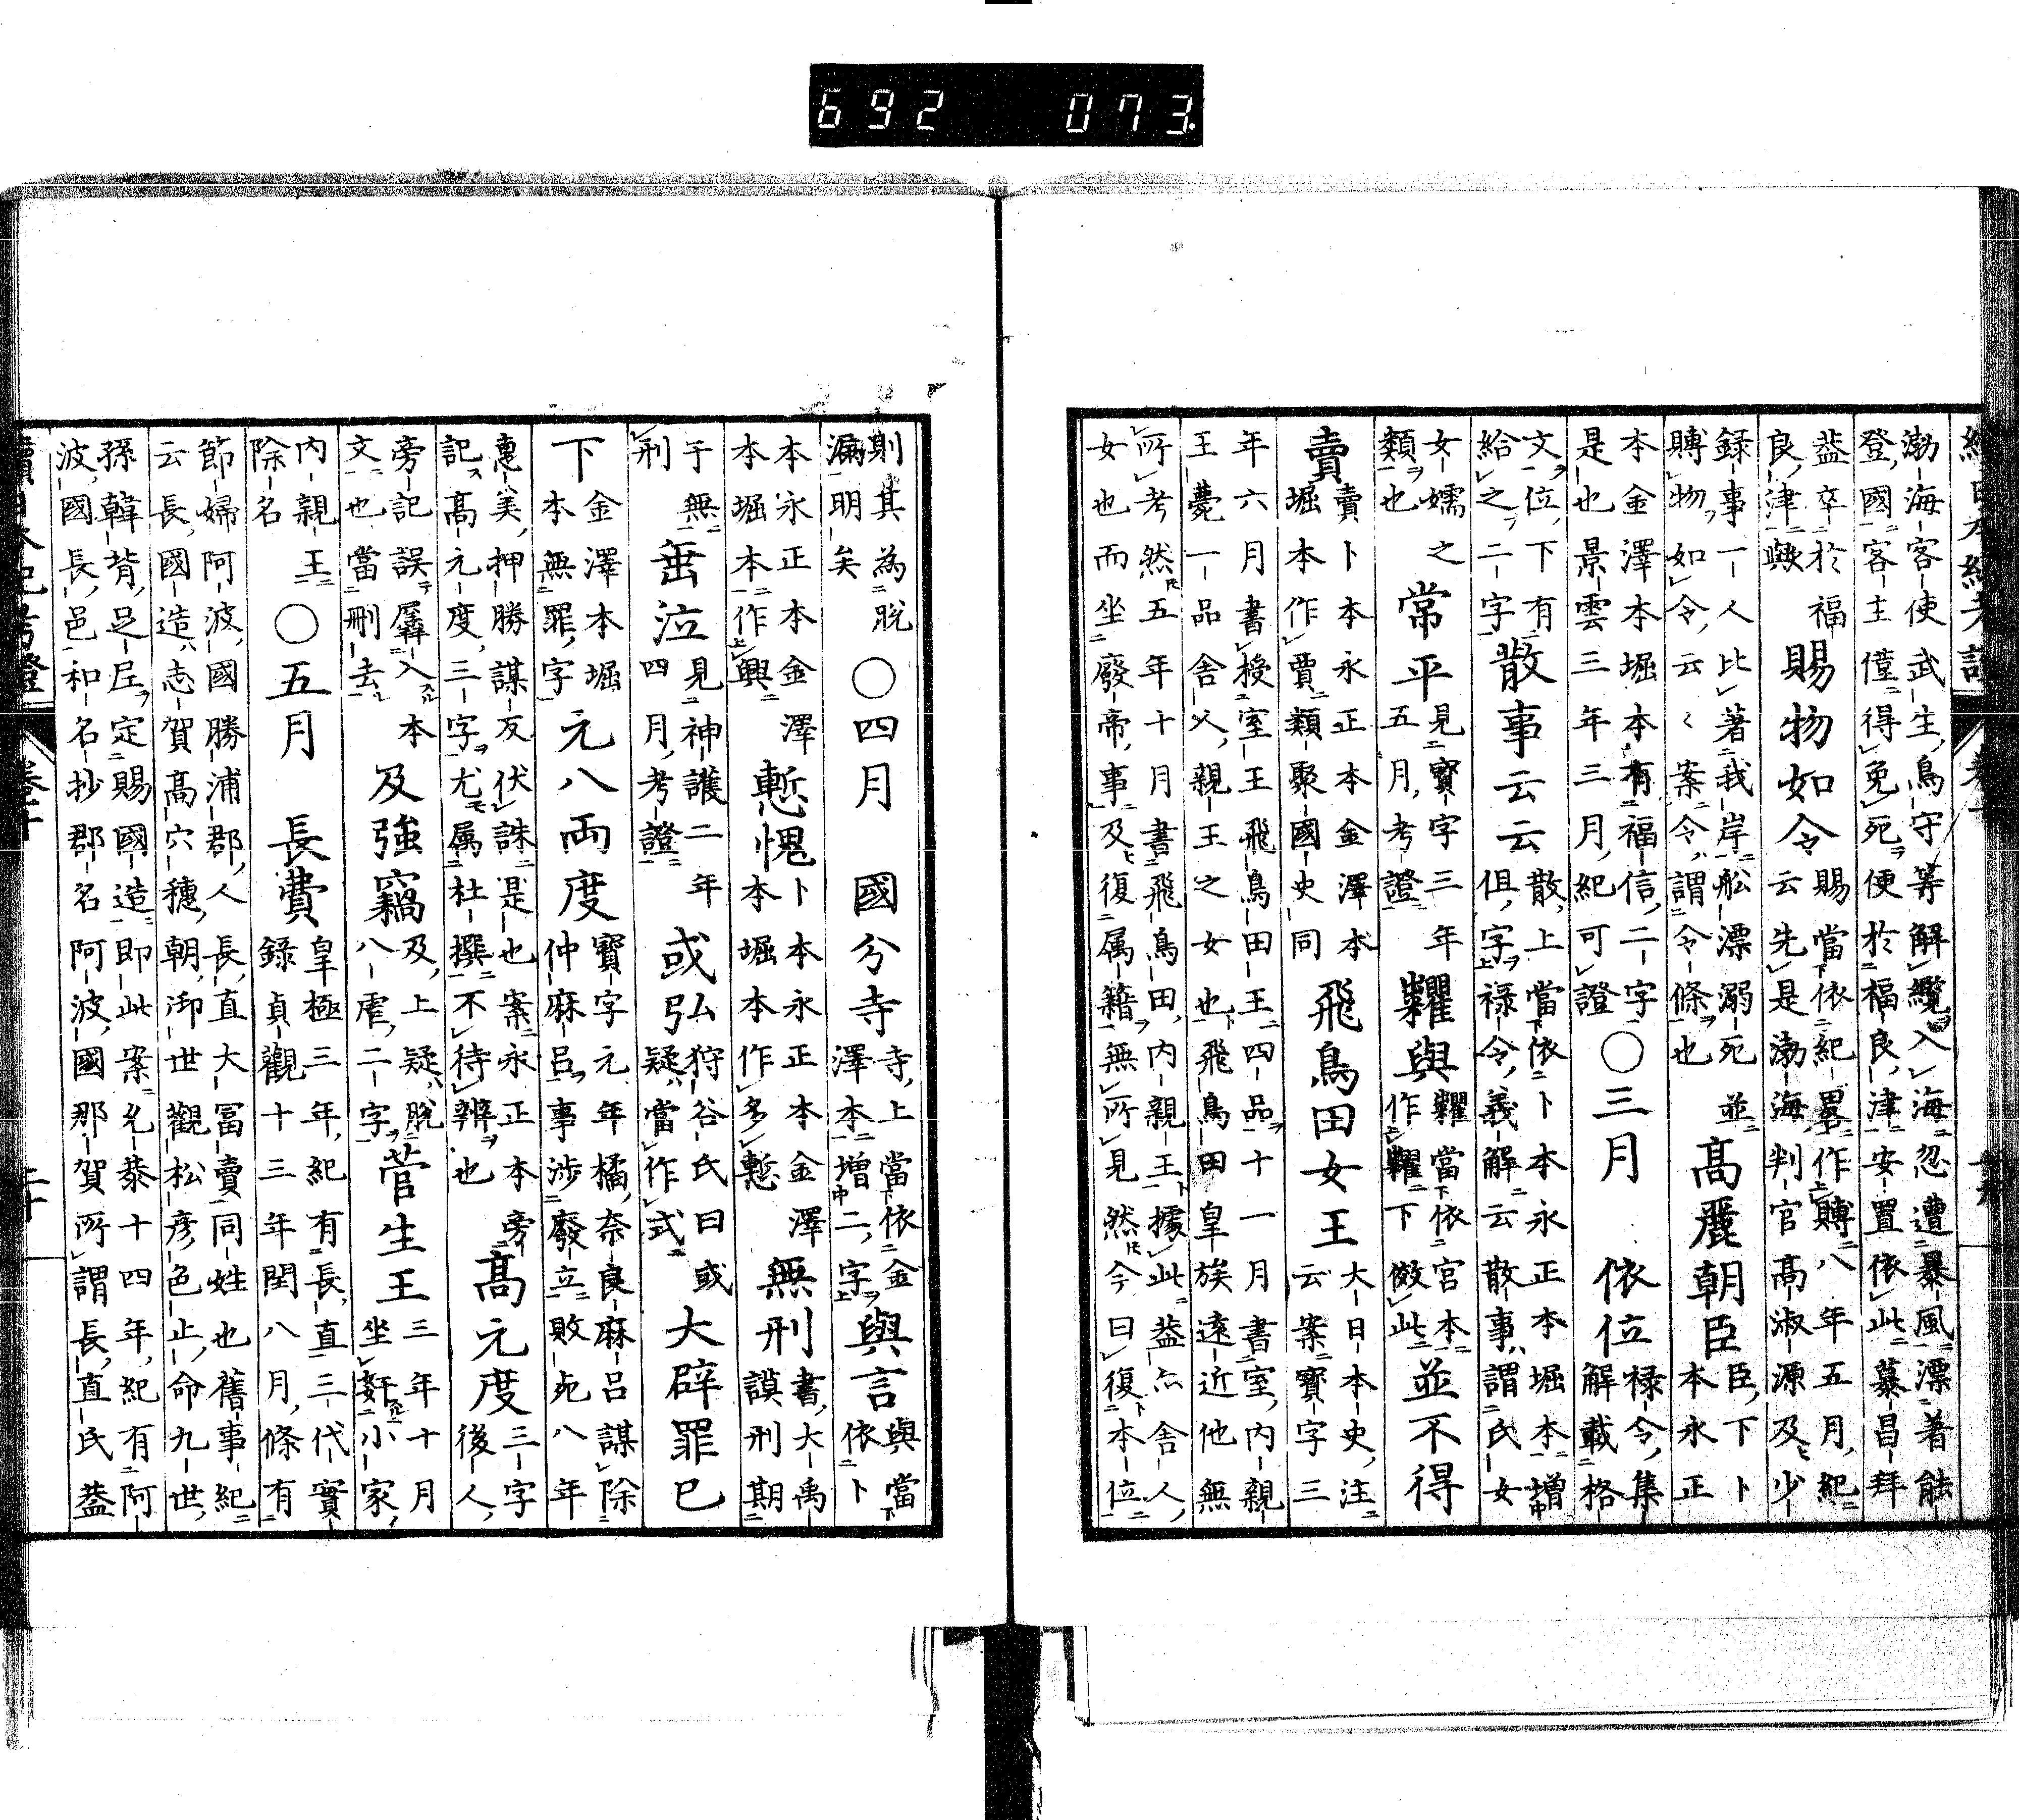 692 073.
渤海客使武生鳥守等解纜入海忽遭暴風漂著能
登國客主僅得免死便於福良津安置依此墓昌拜
蓋卒於福
良津歟
賜物如令
賜當依紀畧作賻八年五月紀
云先是渤海判官高淑源及少
録事一人比著我岸舩漂溺死並
賻物如令云〻案令謂令條也
高麗朝臣
臣下卜
本永正
本金澤本堀本有福信二字
是也景雲三年三月紀可證
〇三月 依位
禄令集
解載格
文位下有
給之二字
散事云云
散上當依卜本永正本堀本増
但字禄令義解云散事謂氏女
女嬬之
類也
常平
見寶字三年
五月考證
糶與
糶當依宮本
作糶下倣此
並不得
賣
賣卜本永正本金澤本
堀本作賈類聚國史同
飛鳥田女王
大日本史注
云案寶字三
年六月書授室王飛鳥田王四品十一月書室内親
王薨一品舎人親王之女也飛鳥田皇族遠近他無
所考然五年十月書飛鳥田内親王據此蓋亦舎人
女也而坐廢帝事及復属籍無所見然今曰復本位
則其為脱
漏明矣
〇四月 國分寺
寺上當依金
澤本増二字
與言
與當
依卜
本永正本金澤
本堀本作興
慙愧
卜本永正本金澤
本堀本作多慙
無刑
書大禹
謨刑期
于無
刑
垂泣
見神護二年
四月考證
或弘
狩谷氏曰或
疑當作式
大辟罪已
下
金澤本堀
本無罪字
元八両度
寶字元年橘奈良麻呂謀除
仲麻呂事渉廢立敗乕八年
惠美押勝謀反伏誅是也案永正本旁
記高元度三字尤属杜撰不待辨也
高元度
三字
後人
旁記誤羼入本
文也當刪去
及強竊
及上疑脱
八虐二字
菅生王
三年十月
坐姧小家
内親王
除名
〇五月 長費
皇極三年紀有長直三代實
録貞觀十三年閏八月條有
節婦阿波國勝浦郡人長直大冨賣同姓也舊事紀
云長國造志賀高穴穗朝御世觀松彦色止命九世
孫韓背足尼定賜國造即此案允恭十四年紀有阿
波國長邑和名抄郡名阿波國那賀所謂長直氏蓋